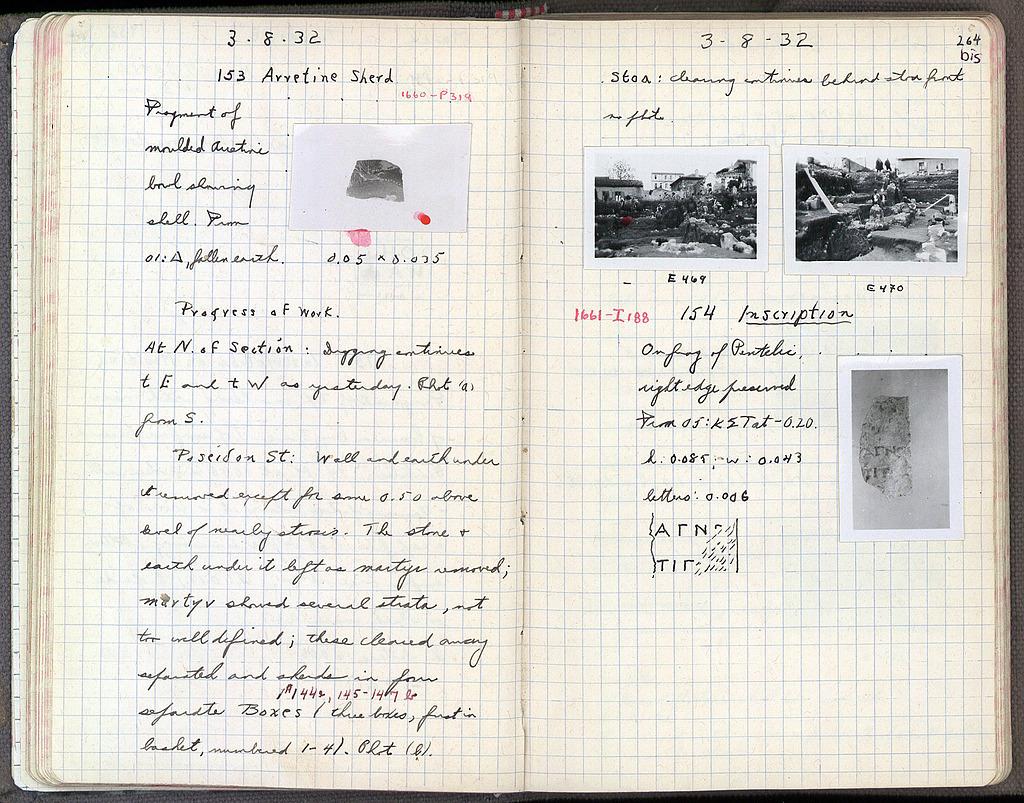 3 · 8 · 32
153 Arretine Sherd
1660-P319
Fragment of
moulded Arretine
bowl showing
shell. From
01:Δ, fallen earth. 0.05 × 0.035
Progress of Work.
At N. of Section : Digging continues
t E and t W as yesterday. Phot (a)
from S.
Poseidon St: Wall and earth under
it removed except for some 0.50 above
level of nearby strosis. The stone +
earth under it left as martyr removed;
martyr showed several strata, not
too well defined; these cleared away
separated and sherds in four
144a, 145-147 b
separate Boxes (three boxes, first in
basket, numbered 1-4). Phot (b).
3 - 8 - 32
264
bis
Stoa : clearing continues behind stoa front
no photo.
E 469
E 470
1661-I188 154 Inscription
On frag of Pentelic,
right edge preserved
From 05:ΚΣΤ at -0.20.
h: 0.085; w: 0.043
letters: 0.006
ΑΓΝ
ΤΙΓ